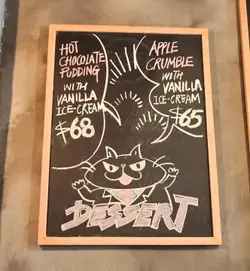 HOT
CHOCOLATE
PUDDING
WITH
VANILLA
ICE-CREAM
$68
APPLE
CRUMBLE
WITH
VANILLA
ICE-CREAM
$65
DESSERT